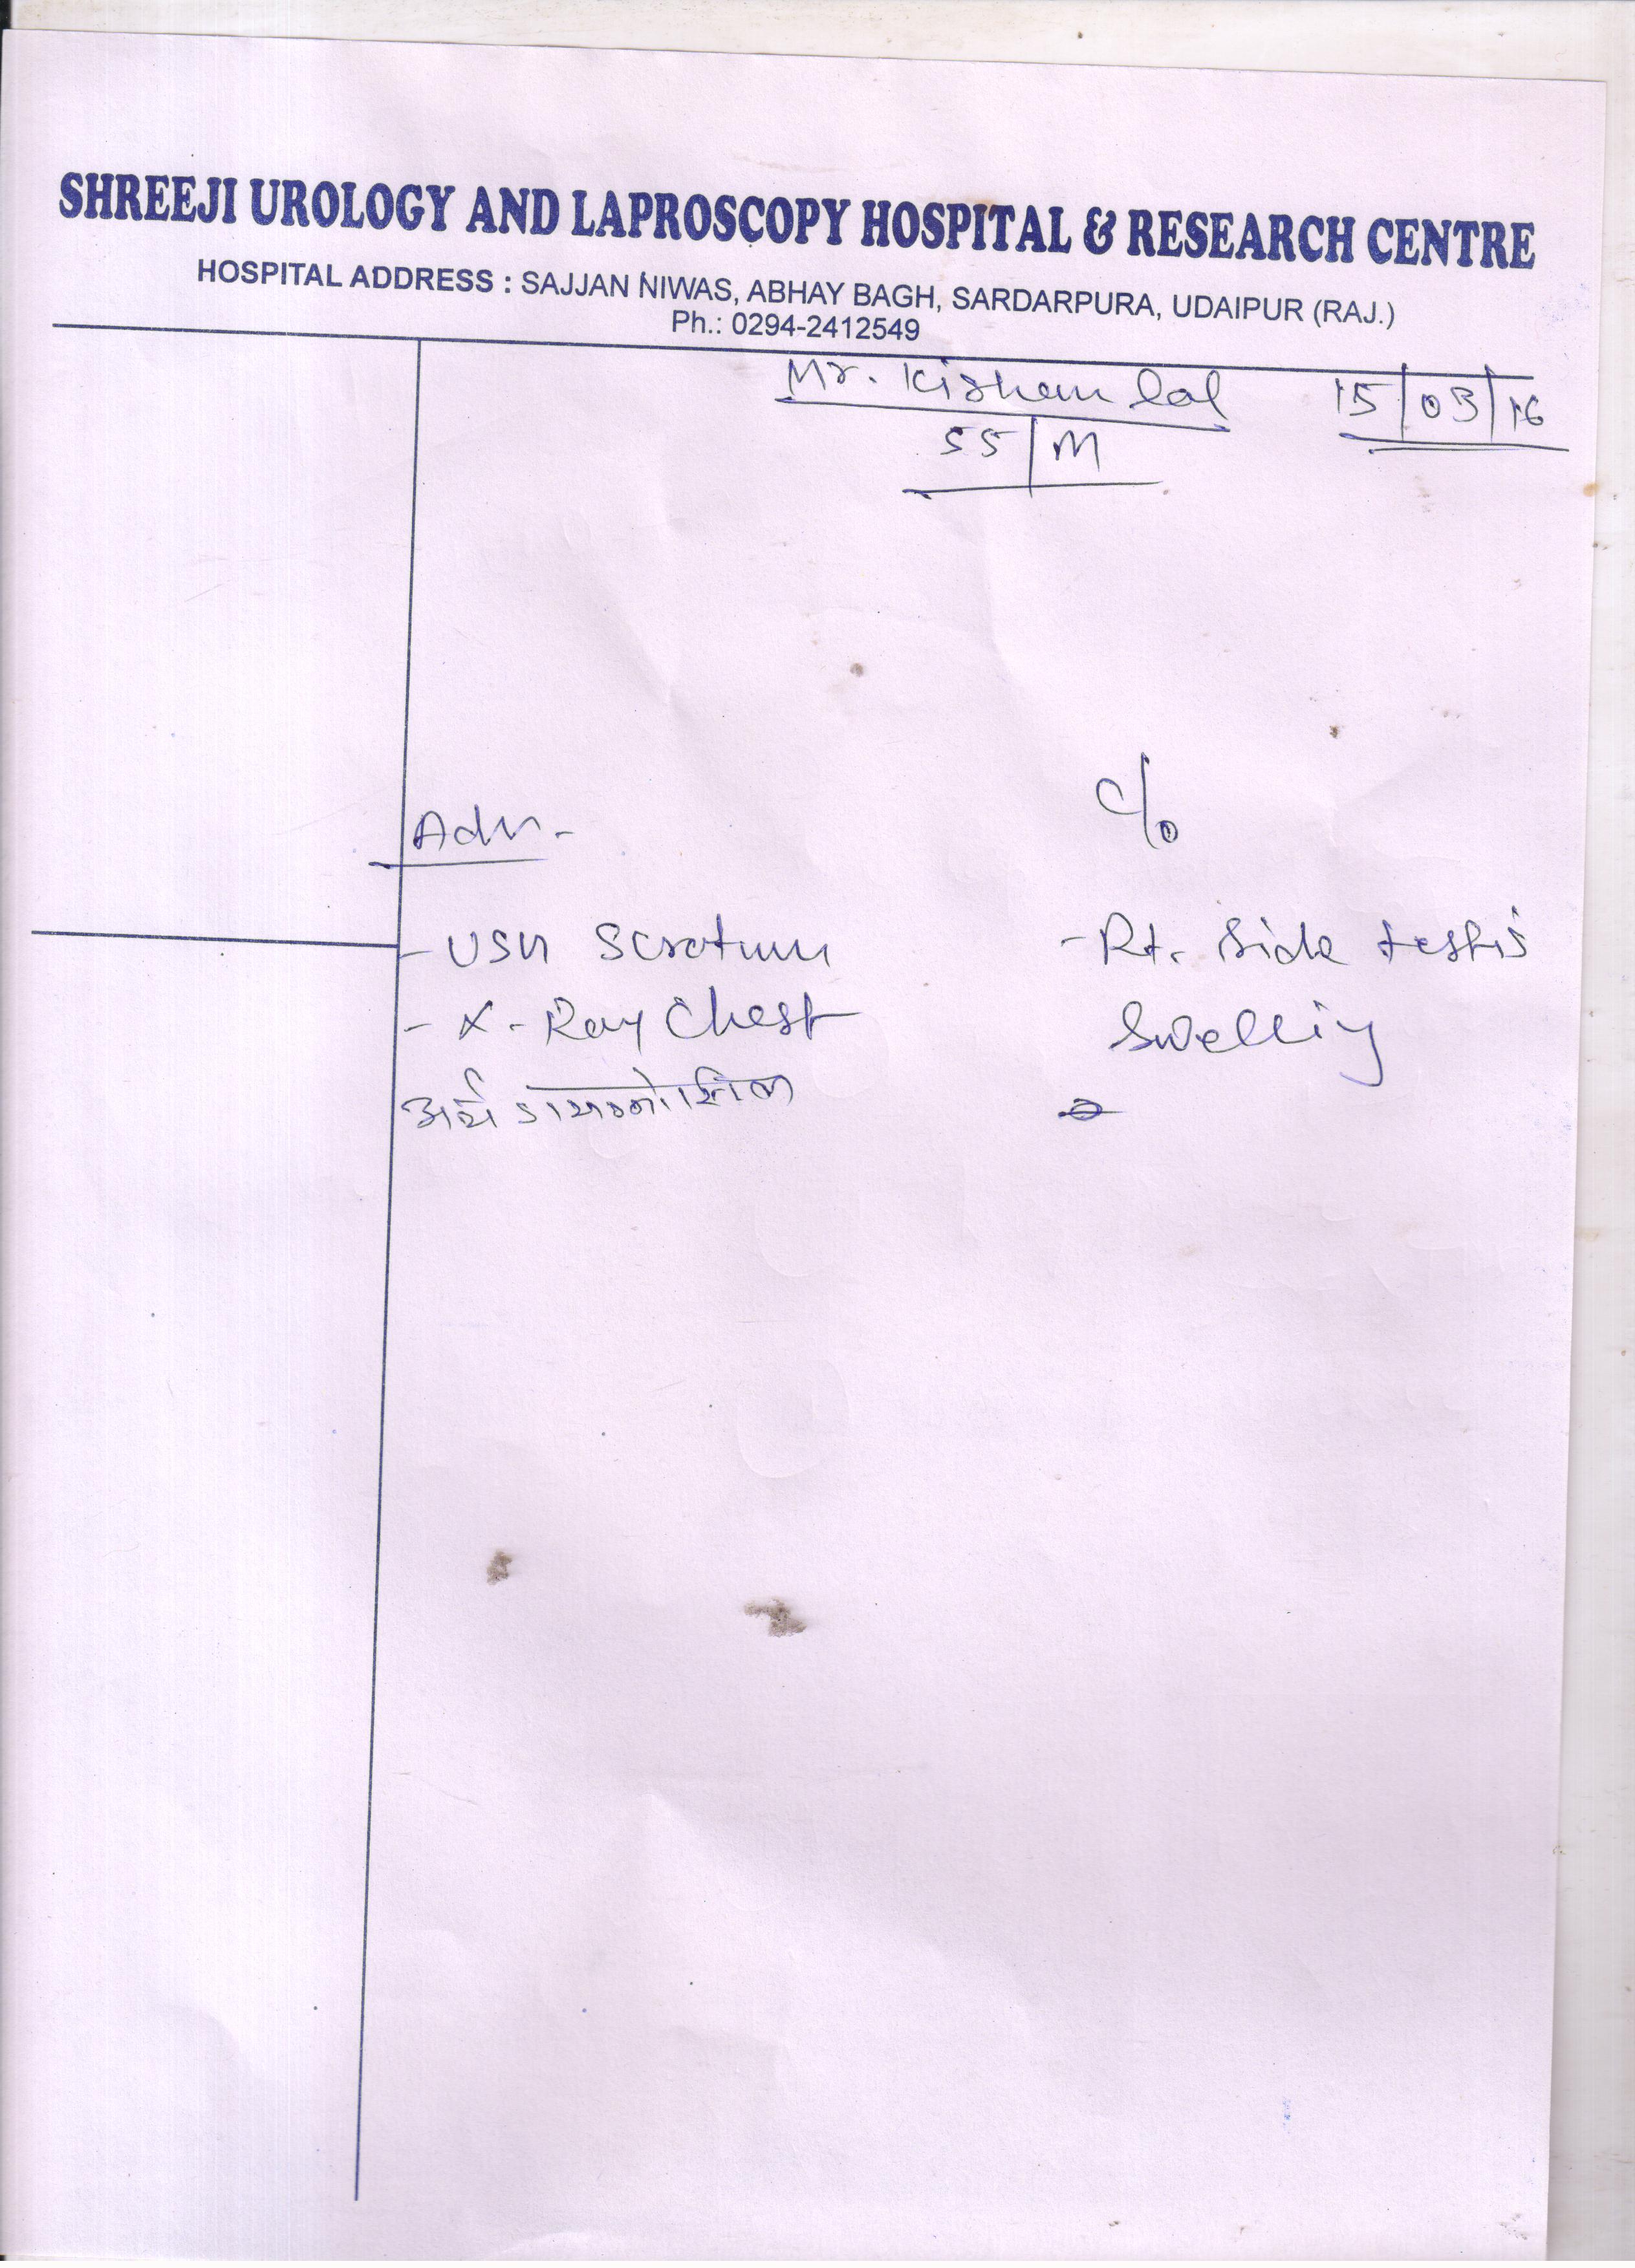 SHREEJI UROLOGY AND LAPROSCOPY HOSPITAL & RESEARCH CENTRE
HOSPITAL ADDRESS : SAJJAN NIWAS, ABHAY BAGH, SARDARPURA, UDAIPUR (RAJ.)
Ph.: 0294-2412549
Mr. Kishan lal 15/03/16
55/M
Adv.-
c/o
- USG Scrotum
- X-Ray Chest
- Rt. Side testis
Swelling
अर्थ डायग्नोस्टिक